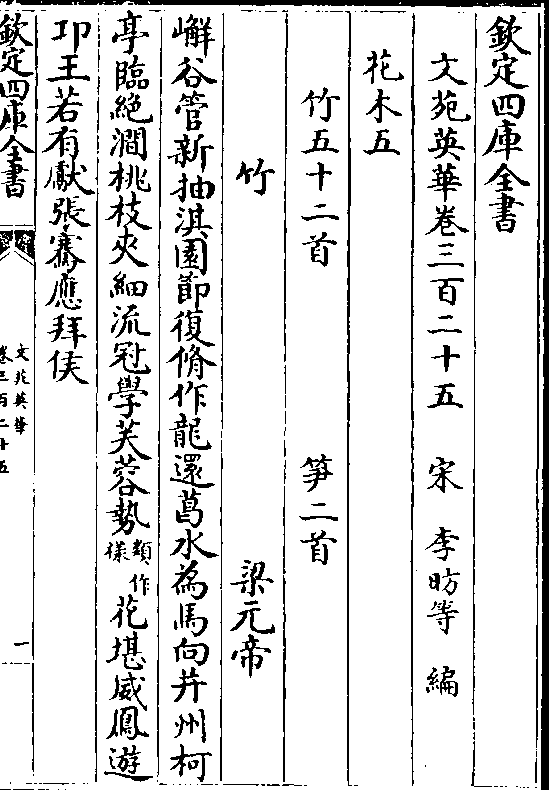 欽定四庫全書
文苑英華卷三百二十五　宋　李昉等　編
花木五
竹五十二首　笋二首
竹　梁元帝
嶰谷管新抽淇園節復脩作龍還葛水為馬向并州柯
亭臨絶澗桃枝夾細流冠學芙蓉勢類作㨾花堪威鳳遊
卭王若有獻張騫應拜侯
欽定四庫全書
文苑英華
卷三百二十五
一